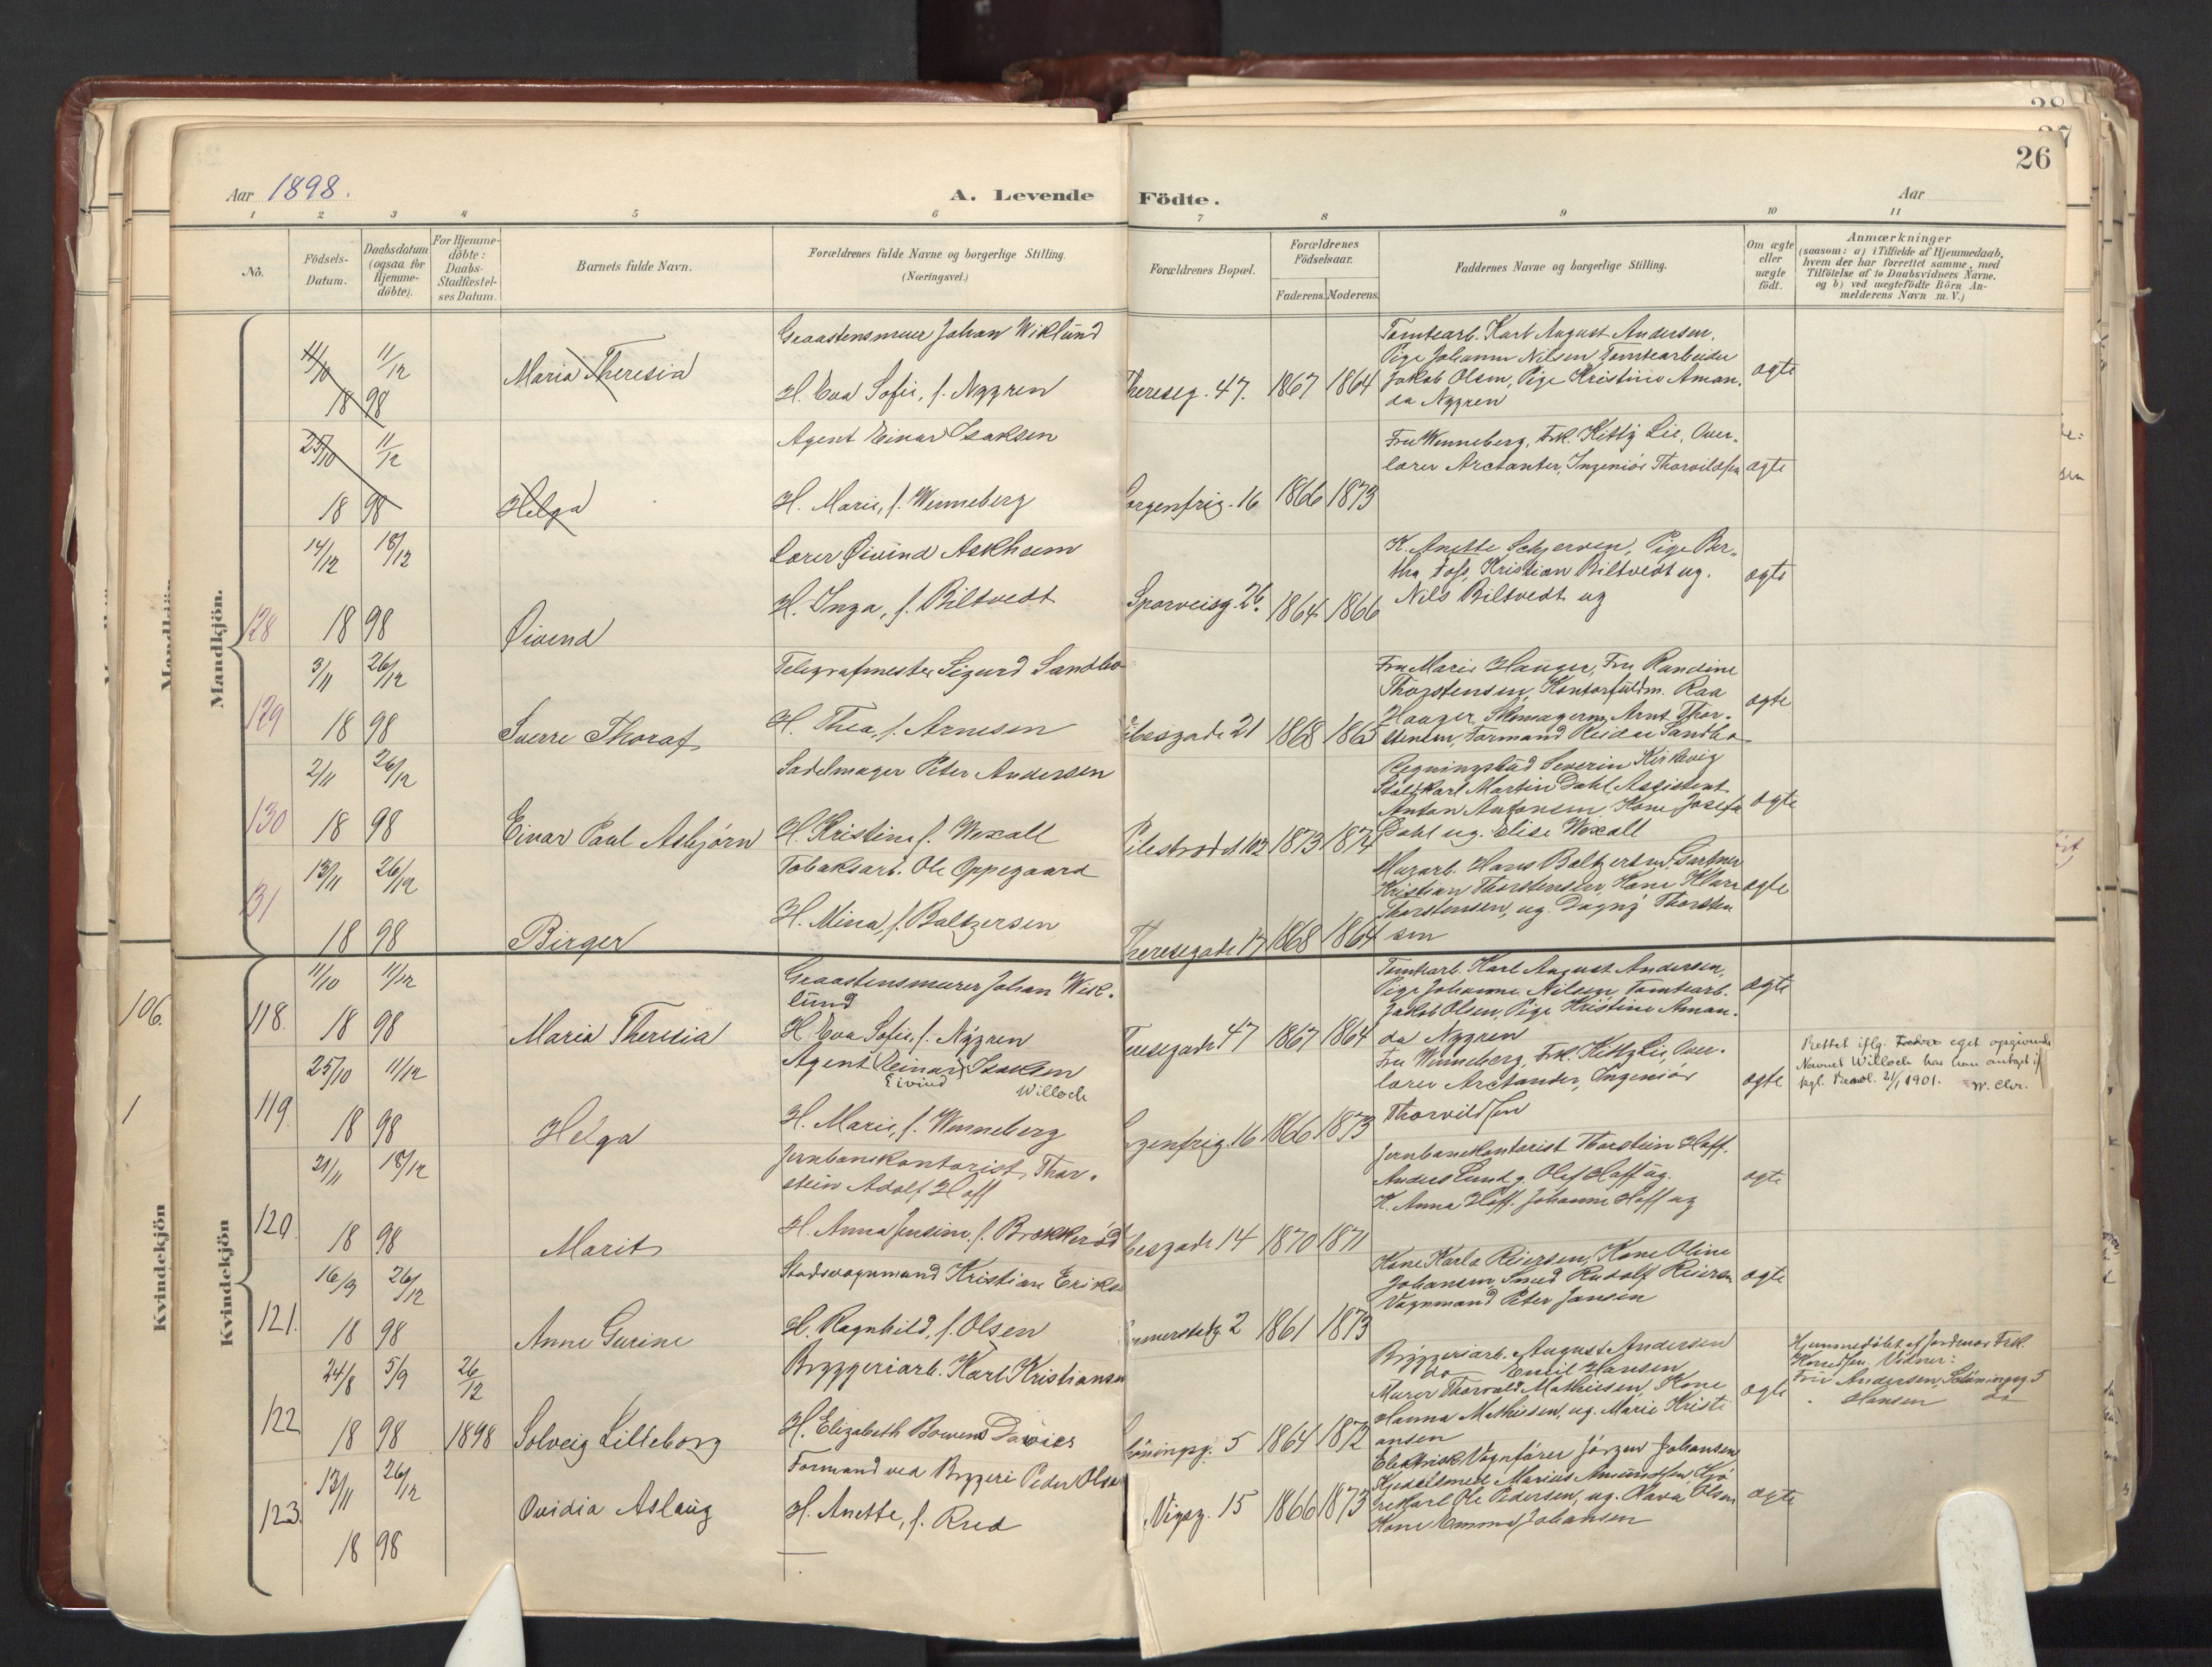 28
27
26
Aar 1898.
A. Levende Födte.
Aar
1 2 3 4 5 6 7 8 9 10 11
No.
Födsels-Datum.
Daabsdatum (ogsaa for Hjemme-döbte).
For Hjemme-döbte: Daabs-Stadfæstel-ses Datum.
Barnets fulde Navn.
Forældrenes fulde Navne og borgerlige Stilling.
(Næringsvei.)
Forældrenes Bopæl.
Forældrenes Födselsaar.
Faderens. Moderens.
Faddernes Navne og borgerlige Stilling.
Om ægte eller uægte födt.
Anmærkninger
(saasom: a) i Tilfælde af Hjemmedaab, hvem der har forrettet samme, med Tilföielse af to Daabsvidners Navne. og b) ved uægtefödte Börn Anmelderens Navn m. V.)
Mandkjön.
11/10 11/12
18 98
Maria Theresia
Graastensmurer Johan Wiklund
H. Eva Sofie, f. Nygren
Thereseg. 47. 1867 1864
Tomtearb. Karl August Andersen,
Pige Johanne Nilsen, Tomtearbeider
Jakob Olsen, Pige Kristine Aman.
da Nygren
ægte
25/10 11/12
18 98
Helga
Agent Einar Isaksen
H. Marie, f. Wenneberg
Sorgenfrig. 16 1866 1873
Fru Wenneberg, Frk. Kitty Lie, Over.
lærer Arctander, Ingeniör Thorvildsen
ægte
128
14/12 18/12
18 98
Øivend
Lærer Øivind Askheim
H. Inga, f. Biltvedt
Sporveisg. 26. 1864 1866
K. Anette Schjerven, Pige Ber.
tha Foss, Kristian Biltvedt ug.
Nils Biltvedt ug
ægte
129
3/11 26/12
18 98
Sverre Thoraf
Telegrafmester Sigurd Sandbo
H. Thea, f. Arnesen
21 1868 1865
Fru Marie Hauger, Fru Randine
Thorstensen, Kontorfuldm. Raa
Hauger, Skomagerm. Arnt Thor.
stensen, Formand Reidar Sandbo
ægte
130
2/11 26/12
18 98
Einar Paul Asbjørn
Sadelmager Peter Andersen
H. Kristine f. Wexall
Pilestrædet 102 1873 1874
Regningsbud Severin Kirkevig
Staldkarl Martin Dahl, Assistent
Anton Antonsen, Kone Josefa
Dahl ug. Elise Wexall
ægte
131
13/11 26/12
18 98
Birger
Tobaksarb. Ole Oppegaard
H. Mina, f. Baltzersen
Theresegade 17 1868 1864
Murarb. Hans Baltzersen, Gartner
Kristian Thorstensen, Kone Klara
Thorstensen, ug. Dagny Thorsten
sen
ægte
Kvindekjön
106.
1
118.
11/10 11/12
18 98
Maria Theresia
Graastensmurer Johan Wik.
lund
H. Eva Sofie, f. Nygren
Theresegade 47 1867 1864
Tomtearb. Karl August Andersen,
Pige Johanne Nilsen, Tomtearb.
Jakob Olsen, Pige Kristine Aman.
da Nygren
ægte
119.
25/10 11/12
18 98
Helga
Agent (Einar) Isaksen
Eivind Willoch
H. Marie, f. Wenneberg
16 1866 1873
Fru Wenneberg, Frk. Kitty Lie, Over.
lærer Arctander, Ingeniör
Thorvildsen
ægte
Rettet iflg. Faders eget opgivende
Navnet Willoch har han antaget if
kgl. 21/1 1901. W. Chr.
120.
21/11 18/12
18 98
Marit
Jernbanekontorist Thor.
stein Adolf Hoff
H. Anna Jensine, f. Brekkerød
14 1870 1871
Jernbanekontorist Thorstein Hoff.
Anders Lund g. Olef Hoff ug.
K. Anna Hoff, Johanne Hoff ug
ægte
121.
16/9 26/12
18 98
Anne Gurine
Stadsvognmand Kristian Eriksen
H. Ragnhild, f. Olsen
2 1861 1873
Kone Karla Reiersen, Kone Oline
Johansen, Smed Rudolf Reiersen
Vognmand Peter Jansen
ægte
122
24/8 5/9 26/12
18 98 1898
Solveig Lilleborg
Bryggeriarb. Karl Kristiansen
H. Elizabeth Bowens Davies
Schøningsg. 5 1864 1872
Bryggeriarb. August Andersen
do Emil Hansen
Murer Thorvald Mathiesen, Kone
Hanna Mathiesen, ug. Marie Kristi
ansen
ægte
Hjemmedøbt af Jordmor Frk.
Vidner:
Fru Andersen, Schøningsg. 5
" Hansen do
123.
13/11 26/12
18 98
Ovidia Aslaug
Formand ved Bryggeri Peder Olsen
H. Anette, f. Rud
15 1866 1873
Elektrisk Vognfører Jörgen Johansen
Kjedelsmed Marius Amundsen, Kjö
rekarl Ole Pedersen, ug. Olava Olsen
Kone Emma Johansen
ægte